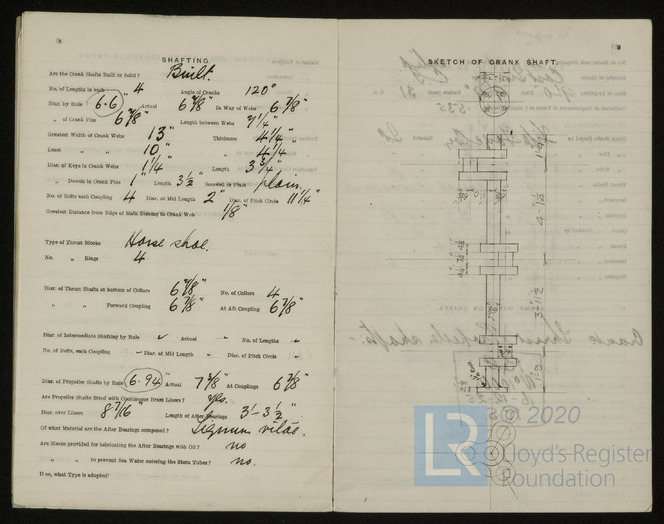 SHAFTING.
Are the Crank Shafts Built or Solid? Built.
No. of Lengths in each 4 Angle of Cranks 120°
Diar. by Rule 6.6 Actual 6 7/8" In Way of Webs 6 7/8"
" of Crank Pins 6 7/8" Length between Webs 7 1/4"
Greatest Width of Crank Webs 13" Thickness 4 1/4"
Least " " 10" " 4 1/4"
Diar. of Keys in Crank Webs 1 1/4" Length 3 3/4"
" Dowels in Crank Pins 1" Length 3 1/2" Screwed or Plain plain.
No. of Bolts each Coupling 4 Diar. at Mid Length 2" Diar. of Pitch Circle 11 1/4"
Greatest Distance from Edge of Main Bearing to Crank Web 1/8"
Type of Thrust Blocks Horse shoe.
No. " Rings 4
Diar. of Thrust Shafts at bottom of Collars 6 7/8" No. of Collars 4
" " Forward Coupling 6 7/8" At Aft Coupling 6 7/8"
Diar. of Intermediate Shafting by Rule Actual No. of Lengths
No. of Bolts, each Coupling Diar. at Mid Length Diar. of Pitch Circle
Diar. of Propeller Shafts by Rule 6.94 Actual 7 7/8" At Couplings 6 7/8"
Are Propeller Shafts fitted with Continuous Brass Liners? Yes.
Diar. over Liners 8 7/16" Length of After Bearings 3'-3 1/2"
Of what Material are the After Bearings composed? Lignum vitae.
Are Means provided for lubricating the After Bearings with Oil? no
" " to prevent Sea Water entering the Stern Tubes? no.
If so, what Type is adopted?
9
SKETCH OF CRANK SHAFT.
LR
© 2020
Lloyd's Register
Foundation